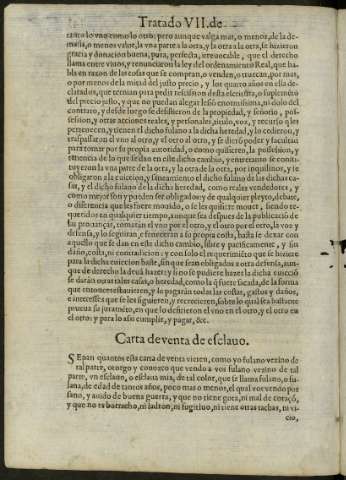 Tratado VII. de
tanto lo vno como lo otro: pero aunque valga mas, o menos, de la de-
masia, o menos valor, la vna parte a la otra, y la otra a la otra, se hizieron
gracia y donacion buena, pura, perfecta, irreuocable, que el derecho
llama entre viuos, y renunciaron la ley del ordenamiento Real, que ha-
bla en razon de las cosas que se compran, o venden, o truecan, por mas,
o por menos de la mitad del justo precio, y los quatro años en ella de-
clarados, que tenian para pedir rescision desta escritura, o suplemento
del precio justo, y que no puedan alegar lesió enormissima, ni dolo del
contrato, y desde luego se desistieron de la propiedad, y señorio, pos-
session, y otras acciones reales, y personales, titulo, voz, y recurso que les
pertenecen, y tienen el dicho fulano a la dicha heredad, y lo cedieron, y
traspassaron el vno al otro, y el otro al otro, y se dieró poder y facultad
para tomar por su propia autoridad, o como quisieren, la possession, y
tenencia de lo que se dan en este dicho cambio, y entretanto se consti-
tuyeron la vna parte de la otra, y la otra de la otra, por inquilinos, y se
obligaron a la euiccion, y saneamiento el dicho fulano de las dichas ca-
sas, y el dicho fulano de la dicha heredad, como reales vendedores, y
como mejor son y pueden ser obligados: y de qualquier pleyto, debate,
o diferencia que les fuere mouido, o se les quisiere mouer, siendo re-
queridos en qualquier tiempo, aunque sea despues de la publicació de
las prouanças, tomaran el vno por el otro, y el otro por el otro, la voz y
defensa, y lo seguiran, y feneceran a su propia costa, hasta se dexar con
aquello que se dan en este dicho cambio, libre y pacificamente, y sin
daño, costa, ni contradicion: y con solo el requerimiéto que se hiziere
para la dicha euiccion baste, sin que sean obligados a otra defensa, aun-
que de derecho la deuã hazer: y si no se pudiere hazer la dicha euicció
se daran otras tales casas, o heredad, como la q̃ fuere sacada, de la forma
que entonces estuuieren, y le pagarán todas las costas, gastos y daños,
e interesses que se les siguieren, y recrecieren, sobre lo qual sea bastante
prueua su juraméto, en que lo difirieron el vno en el otro, y el otro en
el otro: y para lo assi cumplir, y pagar, &c.
Carta de venta de esclauo.
SEpan quantos esta carta de venta vieren, como yo fulano vezino de
tal parte, otorgo y conozco que vendo a vos fulano vezino de tal
parte, vn esclauo, o esclaua mia, de tal color, que se llama fulano, o fu-
lana, de edad de tantos años, poco mas o menos, el qual vos vendo por
sano, y auido de buena guerra, y que no tiene gota, ni mal de coraçó,
y que no es borracho, ni ladron, ni fugitiuo, ni tiene otras tachas, ni vi-
cio,